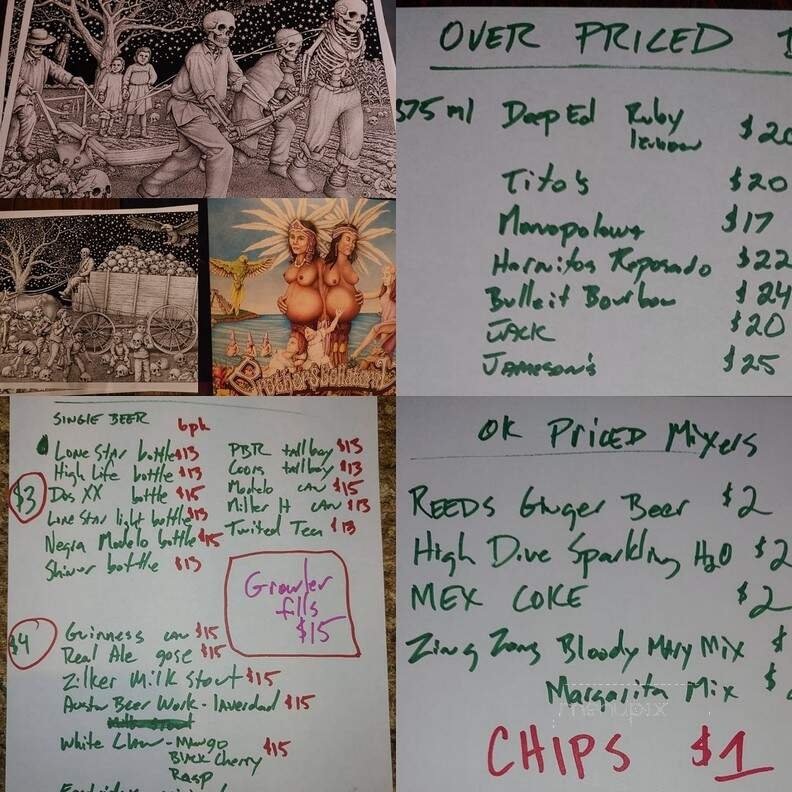 OVER PRICED
375 ml Deep Ed Ruby $20
Tito's $20
Monopolowa $17
Hornitos Reposado $22
Bulleit Bourbon $24
JACK $20
JAMESON'S $25
SINGLE BEER 6pk
$3
Lone Star bottle $13
High Life bottle $13
Dos XX bottle $15
Lone Star light bottle $13
Negra Modelo bottle $15
Shiner bottle $13
PBR tallboy $15
Coors tallboy $13
Modelo can $15
Miller H can $13
Twisted Tea $13
Growler
fills
$15
$4
Guinness can $15
Real Ale gose $15
Zilker Milk Stout $15
Austin Beer Work - Inverdad $15
White Claw - Mango $15
Black Cherry
Rasp
OK PRICED Mixers
REEDS Ginger Beer $2
High Dive Sparkling H2O $2
MEX COKE $2
Zing Zang Bloody Mary Mix $
Margarita Mix $
menupix
CHIPS $1